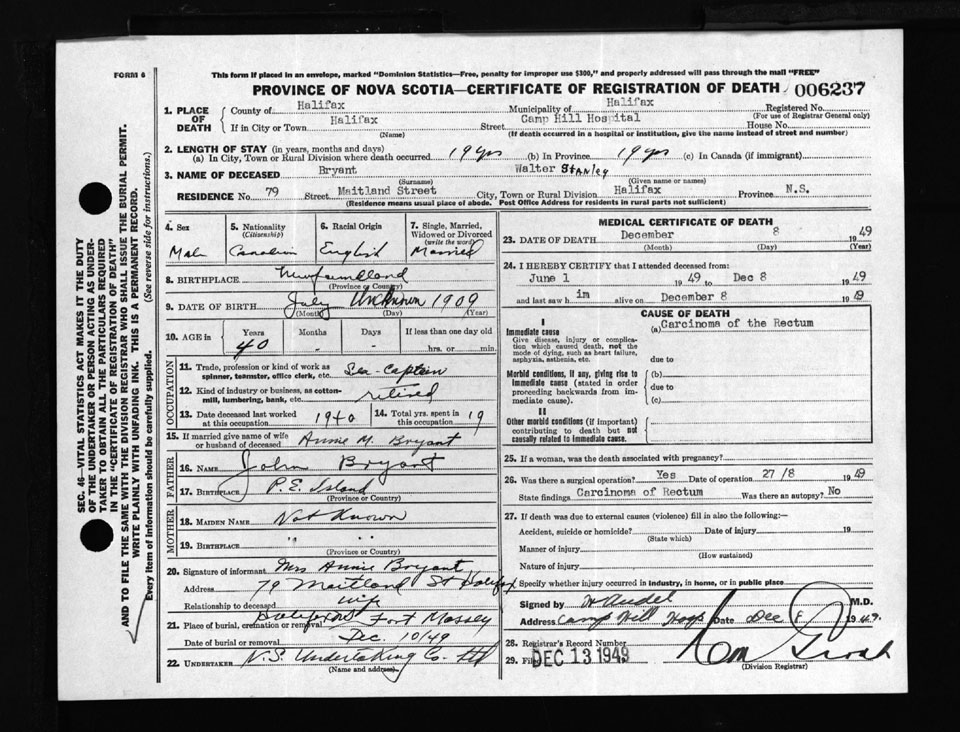 FORM 6
This form if placed in an envelope, marked "Dominion Statistics—Free, penalty for improper use $300," and properly addressed will pass through the mail "FREE"
PROVINCE OF NOVA SCOTIA—CERTIFICATE OF REGISTRATION OF DEATH 006237
1. PLACE OF DEATH
County of Halifax Municipality of Halifax Registered No.
(For use of Registrar General only)
If in City or Town Halifax Street Camp Hill Hospital House No.
(Name) (If death occurred in a hospital or institution, give the name instead of street and number)
2. LENGTH OF STAY (in years, months and days)
(a) In City, Town or Rural Division where death occurred 19 yrs (b) In Province 19 yrs (c) In Canada (if immigrant)
3. NAME OF DECEASED Bryant Walter Stanley
(Surname) (Given name or names)
RESIDENCE No. 79 Street Maitland Street City, Town or Rural Division Halifax Province N.S.
(Residence means usual place of abode. Post Office Address for residents in rural parts not sufficient)
4. Sex 5. Nationality (Citizenship) 6. Racial Origin 7. Single, Married, Widowed or Divorced (write the word)
Male Canadian English Married
8. BIRTHPLACE Newfoundland
(Province or Country)
9. DATE OF BIRTH July Unknown 1909
(Month) (Day) (Year)
10. AGE in Years Months Days If less than one day old
40 " " hrs. or min.
OCCUPATION
11. Trade, profession or kind of work as spinner, teamster, office clerk, etc. Sea-Captain
12. Kind of industry or business, as cotton-mill, lumbering, bank, etc. retired
13. Date deceased last worked at this occupation 1940 14. Total yrs. spent in 19
15. If married give name of wife or husband of deceased Annie M. Bryant
FATHER
16. NAME John Bryant
17. BIRTHPLACE P.E. Island
(Province or Country)
MOTHER
18. MAIDEN NAME Not Known
19. BIRTHPLACE " "
(Province or Country)
20. Signature of informant Mrs Annie Bryant
Address 79 Maitland St Halifax
Relationship to deceased wife
21. Place of burial, cremation or removal Halifax Fort Massey
Date of burial or removal Dec. 10/49
22. UNDERTAKER N.S. Undertaking Co. Ltd
(Name and address)
MEDICAL CERTIFICATE OF DEATH
23. DATE OF DEATH December 8 1949
(Month) (Day) (Year)
24. I HEREBY CERTIFY that I attended deceased from:
June 1 1949 to Dec 8 1949
and last saw him alive on December 8 1949
CAUSE OF DEATH
I
Immediate cause (a) Carcinoma of the Rectum
Give disease, injury or complication which caused death, not the mode of dying, such as heart failure, asphyxia, asthenia, etc. due to
Morbid conditions, if any, giving rise to immediate cause (stated in order proceeding backwards from immediate cause). (b)
due to
(c)
II
Other morbid conditions (if important) contributing to death but not causally related to immediate cause.
25. If a woman, was the death associated with pregnancy?
26. Was there a surgical operation? Yes Date of operation 27/8 1949
State findings Carcinoma of Rectum Was there an autopsy? No
27. If death was due to external causes (violence) fill in also the following:—
Accident, suicide or homicide? Date of injury 19
(State which)
Manner of injury
(How sustained)
Nature of injury
Specify whether injury occurred in industry, in home, or in public place
Signed by M.D.
Address Camp Hill Hosp Date Dec 8 1949
28. Registrar's Record Number
29. Filed DEC 13 1949
(Division Registrar)
SEC. 46—VITAL STATISTICS ACT MAKES IT THE DUTY
OF THE UNDERTAKER OR PERSON ACTING AS UNDER-
TAKER TO OBTAIN ALL THE PARTICULARS REQUIRED
IN THE "CERTIFICATE OF REGISTRATION OF DEATH"
AND TO FILE THE SAME WITH THE DIVISION REGISTRAR WHO SHALL ISSUE THE BURIAL PERMIT.
WRITE PLAINLY WITH UNFADING INK. THIS IS A PERMANENT RECORD.
Every item of information should be carefully supplied. (See reverse side for instructions.)